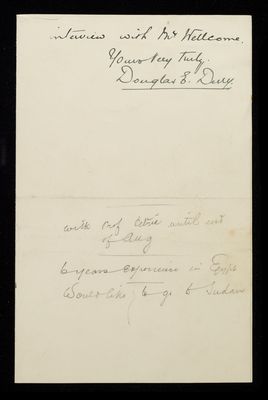 interview with Mr Wellcome.
Yours Very Truly.
Douglas E. Derry.
with Prof Petrie until end
of Aug
6 years experience in Egypt
Would like to go to Sudan